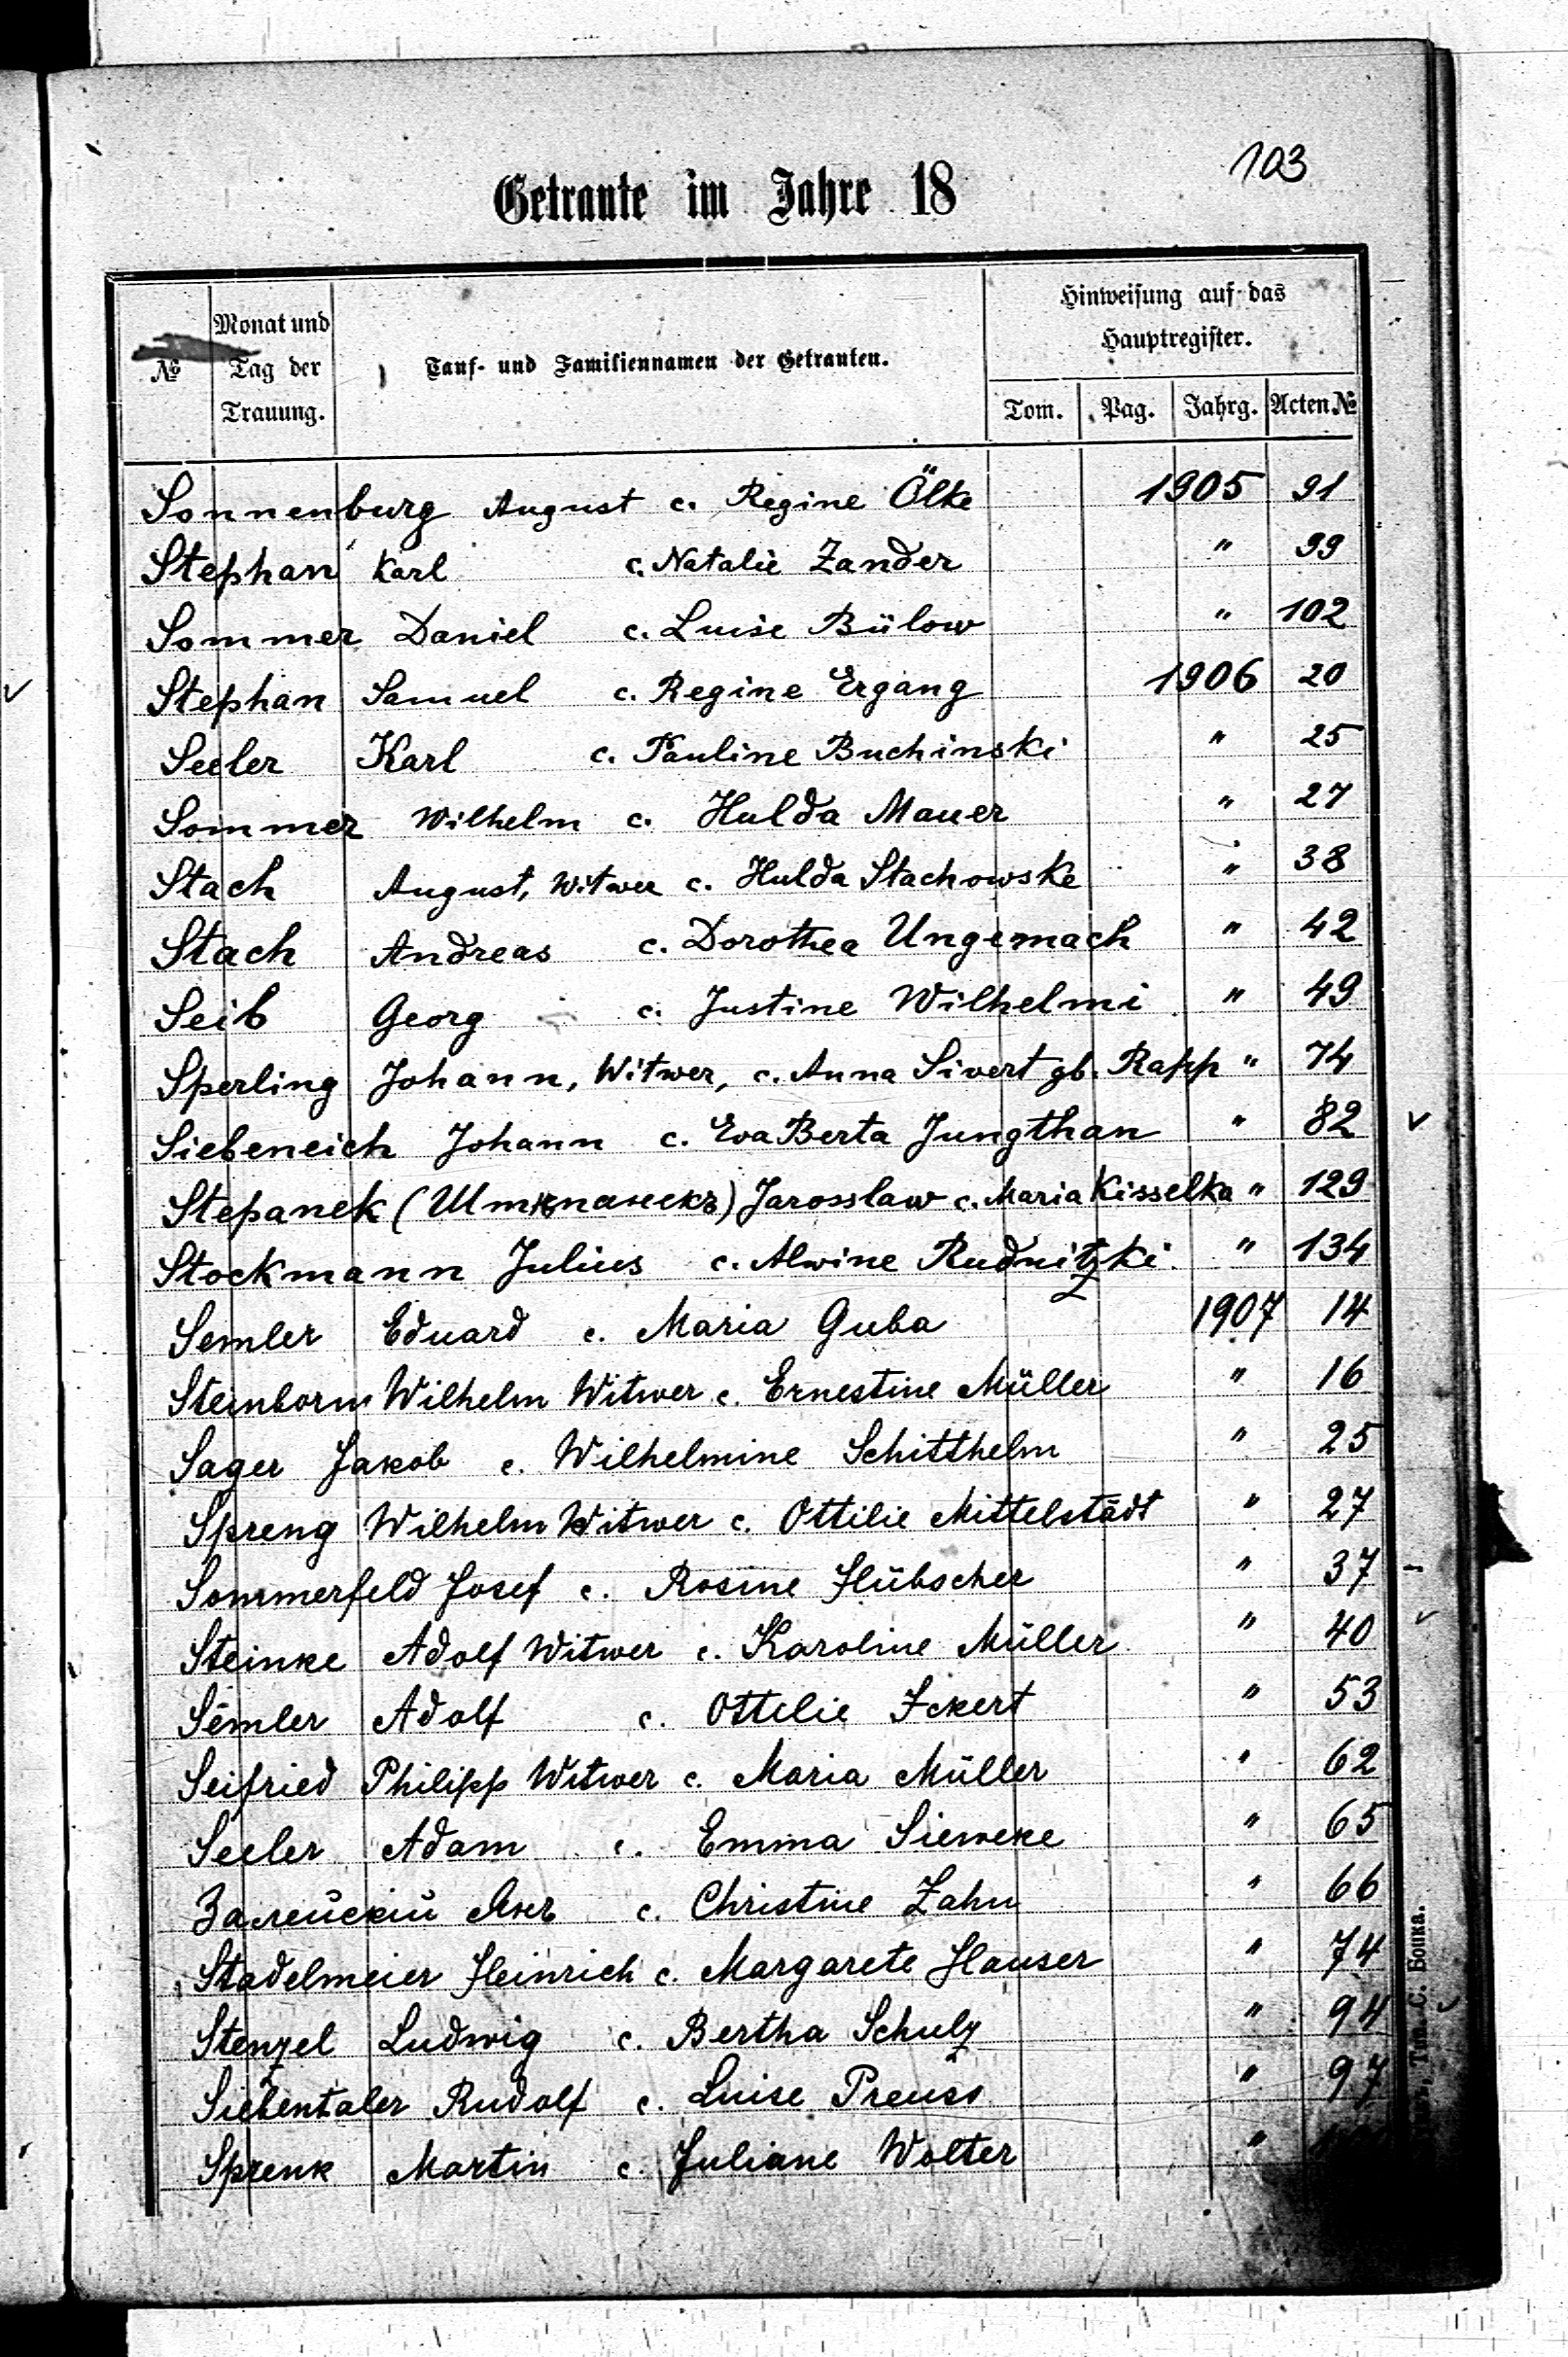 103
Getraute im Jahre 18
№
Monat und Tag der Trauung.
Tauf- und Familiennamen der Getrauten.
Hinweisung auf das Hauptregister.
Tom. Pag. Jahrg. Acten №
Sonnenburg August c. Regine Ölke 1905 91
Stephan Karl c. Natalie Zander " 99
Sommer Daniel c. Luise Bülow " 102
Stephan Samuel c. Regine Ergang 1906 20
Seeler Karl c. Pauline Buchinski " 25
Sommer Wilhelm c. Hulda Mauer " 27
Stach August, Witwer c. Hulda Stachowske " 38
Stach Andreas c. Dorothea Ungemach " 42
Seib Georg c. Justine Wilhelmi " 49
Sperling Johann, Witwer, c. Anna Sivert gb. Rapp " 74
Siebeneich Johann c. Eva Berta Jungthan " 82
Stepanek (Штѣпанекъ) Jarosslaw c. Maria Kisselka " 129
Stockmann Julius c. Alwine Rudnitzki " 134
Semler Eduard c. Maria Guba 1907 14
Steinborn Wilhelm Witwer c. Ernestine Müller " 16
Sager Jakob c. Wilhelmine Schitthelm " 25
Spreng Wilhelm Witwer c. Ottilie Mittelstädt " 27
Sommerfeld Josef c. Rosine Hübscher " 37
Steinke Adolf Witwer c. Karoline Müller " 40
Semler Adolf c. Ottilie Ickert " 53
Seifried Philipp Witwer c. Maria Müller " 62
Seeler Adam c. Emma Sieweke " 65
Залейскій c. Christine Zahn " 66
Stadelmeier Heinrich c. Margarete Hauser " 74
Stenzel Ludwig c. Bertha Schulz " 94
Siebentaler Rudolf c. Luise Preuss " 97
Sprenk Martin c. Juliane Wolter "
Тип. С. Бойка.